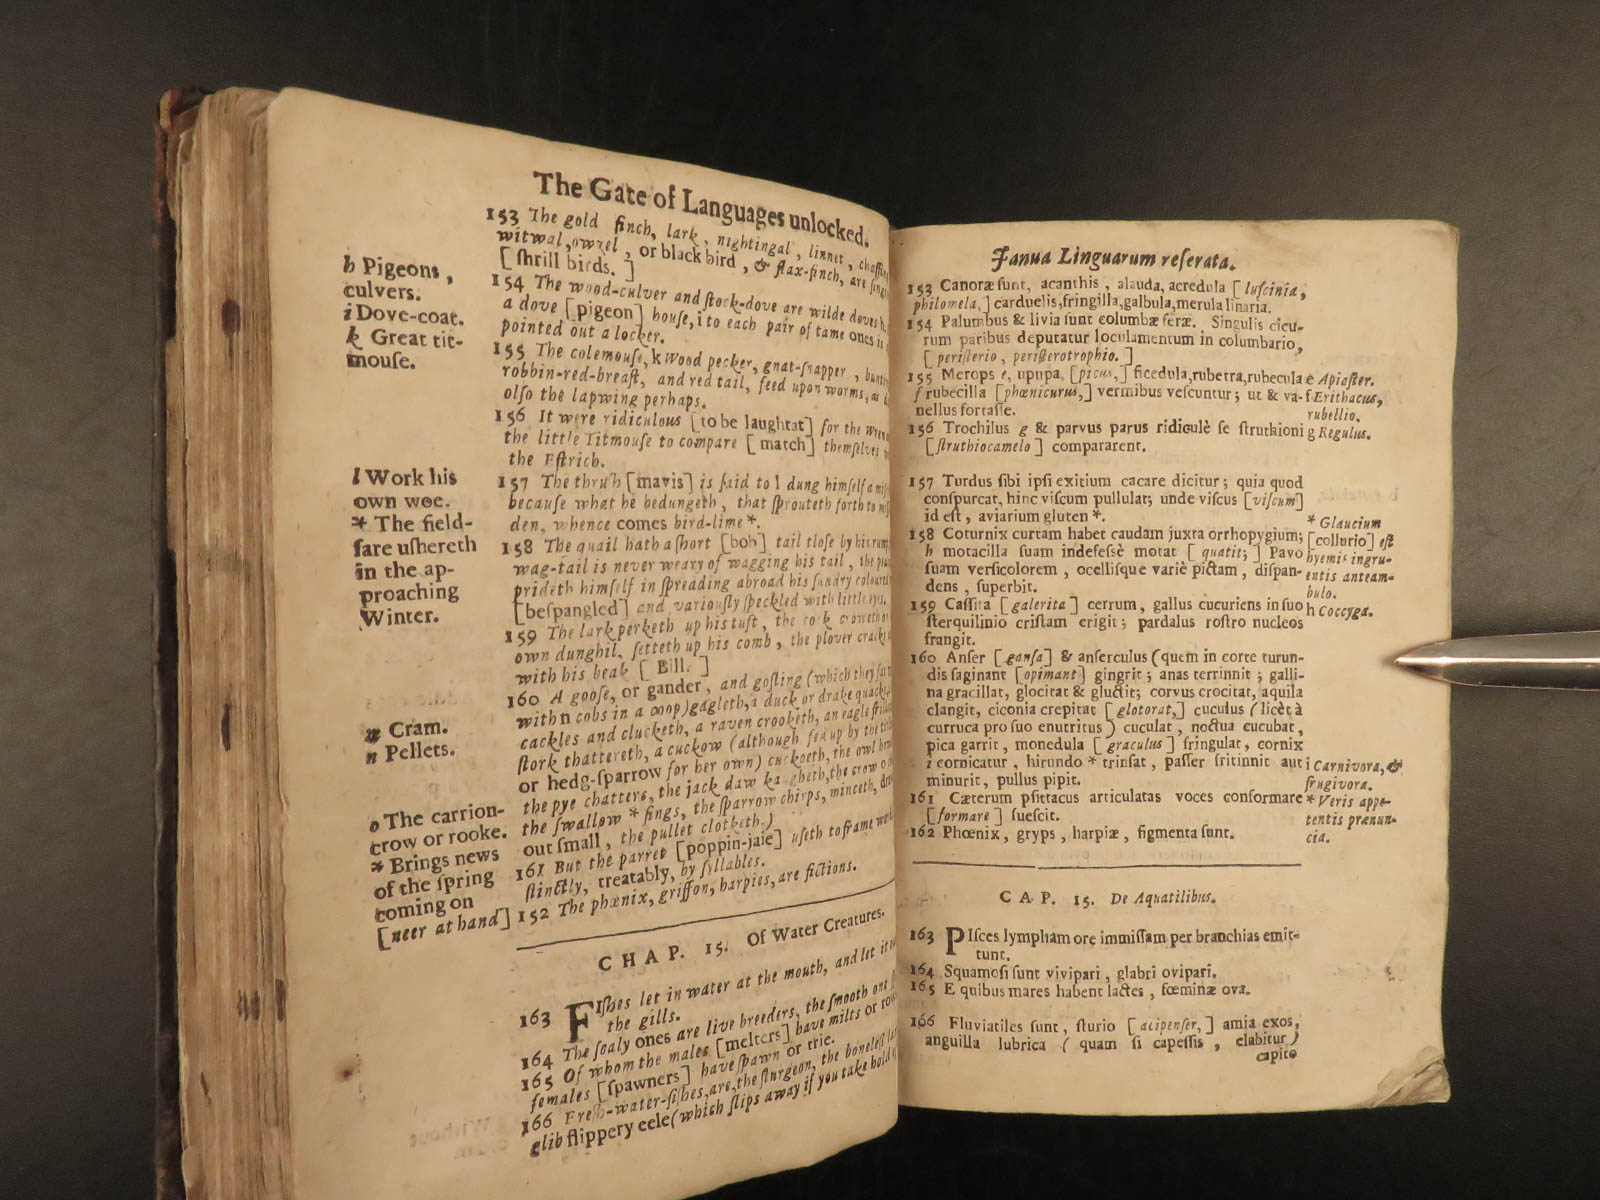 The Gate of Languages unlocked.
153 The gold finch, lark, nightingal, linnet, chaffin
witwal, owzel, or black bird, & flax-finch, are
[ſhrill birds.]
154 The wood-culver and ſtock-dove are wilde doves
a dove [pigeon] houſe, i to each pair of tame ones is
pointed out a locker.
155 The colemouſe, k Wood pecker, gnat-ſnapper,
robbin-red-breaſt, and red tail, feed upon worms, as
olſo the lapwing perhaps.
156 It were ridiculous [to be laughtat] for the wren
the little Titmouſe to compare [match] themſelves
the Eſtrich.
157 The thruſh [mavis] is ſaid to l dung himſelf a
becauſe what he bedungeth, that ſprouteth forth to
den, whence comes bird-lime*.
158 The quail hath a ſhort [bob] tail cloſe by his rump
wag-tail is never weary of wagging his tail, the
prideth himſelf in ſpreading abroad his ſundry coloured
[beſpangled] and variouſly ſpeckled with little eyes.
159 The lark perketh up his tuft, the cock croweth
own dunghil, ſetteth up his comb, the plover
with his beak [Bill.]
160 A gooſe, or gander, and goſling (which they
with n cobs in a coop) gagleth, a duck or drake
cackles and clucketh, a raven crooketh, an eagle
ſtork chattereth, a cuckow (although fed up by the
or hedg-ſparrow for her own) cuckoeth, the owl
the pye chatters, the jack daw kaagheth, the crow
the ſwallow * ſings, the ſparrow chirps, minceth,
out ſmall, the pullet clotketh.)
161 But the parret [poppin-jaie] uſeth to frame
ſtinctly, treatably, by ſyllables.
152 The phœnix, griffon, harpies, are fictions.
CHAP. 15. Of Water Creatures.
163 Fiſhes let in water at the mouth, and let it
the gills.
164 The ſcaly ones are live breeders, the ſmooth one
165 Of whom the males [melters] have milts or
females [ſpawners] have ſpawn or frie.
166 Freſh-water-fiſhes, are, the ſturgeon, the boneleſſ
glib ſlippery eele (which ſlips away if you take hold
h Pigeons,
culvers.
i Dove-coat.
k Great tit-
mouſe.
l Work his
own woe.
* The field-
fare uſhereth
in the ap-
proaching
Winter.
Cram.
n Pellets.
o The carrion-
crow or rooke.
* Brings news
of the ſpring
coming on
[neer at hand]
Janua Linguarum reſerata.
153 Canoræ ſunt, acanthis, alauda, acredula [luſcinia,
philomela,] carduelis, fringilla, galbula, merula linaria.
154 Palumbus & livia ſunt columbæ feræ. Singulis cicu-
rum paribus deputatur loculamentum in columbario,
[periſterio, periſterotrophio.]
155 Merops e, upupa, [picus,] ficedula, rubetra, rubecula
f rubecilla [phœnicurus,] vermibus veſcuntur; ut & va-
nellus fortaſſe.
156 Trochilus g & parvus parus ridiculè ſe ſtruthioni
[ſtruthiocamelo] compararent.
157 Turdus ſibi ipſi exitium cacare dicitur; quia quod
conſpurcat, hinc viſcum pullulat; unde viſcus [viſcum]
id eſt, aviarium gluten *.
158 Coturnix curtam habet caudam juxta orrhopygium;
h motacilla ſuam indefeſsè motat [quatit;] Pavo
ſuam verſicolorem, ocelliſque variè pictam, diſpan-
dens, ſuperbit.
159 Caſſita [galerita] cerrum, gallus cucuriens in ſuo
ſterquilinio criſtam erigit; pardalus roſtro nucleos
frangit.
160 Anſer [ganſa] & anſerculus (quem in corte turun-
dis ſaginant [opimant] gingrit; anas terrinnit; galli-
na gracillat, glocitat & gluctit; corvus crocitat, aquila
clangit, ciconia crepitat [glotorat,] cuculus (licèt à
curruca pro ſuo enutritus) cuculat, noctua cucubat,
pica garrit, monedula [graculus] fringulat, cornix
i cornicatur, hirundo * trinſat, paſſer fritinnit aut
minurit, pullus pipit.
161 Cæterum pſittacus articulatas voces conformare
[formare] ſueſcit.
162 Phœnix, gryps, harpiæ, figmenta ſunt.
e Apiaſter.
f Erithacus,
rubellio.
g Regulus.
* Glaucium
[collurio] eſt
hyemis ingru-
entis anteam-
bulo.
h Coccyga.
i Carnivora, &
frugivora.
* Veris appe-
tentis prænun-
cia.
CAP. 15. De Aquatilibus.
163 PIſces lympham ore immiſſam per branchias emit-
tunt.
164 Squamoſi ſunt vivipari, glabri ovipari.
165 E quibus mares habent lactes, fœminæ ova.
166 Fluviatiles ſunt, ſturio [acipenſer,] amia exos,
anguilla lubrica (quam ſi capeſſis, elabitur)
capito